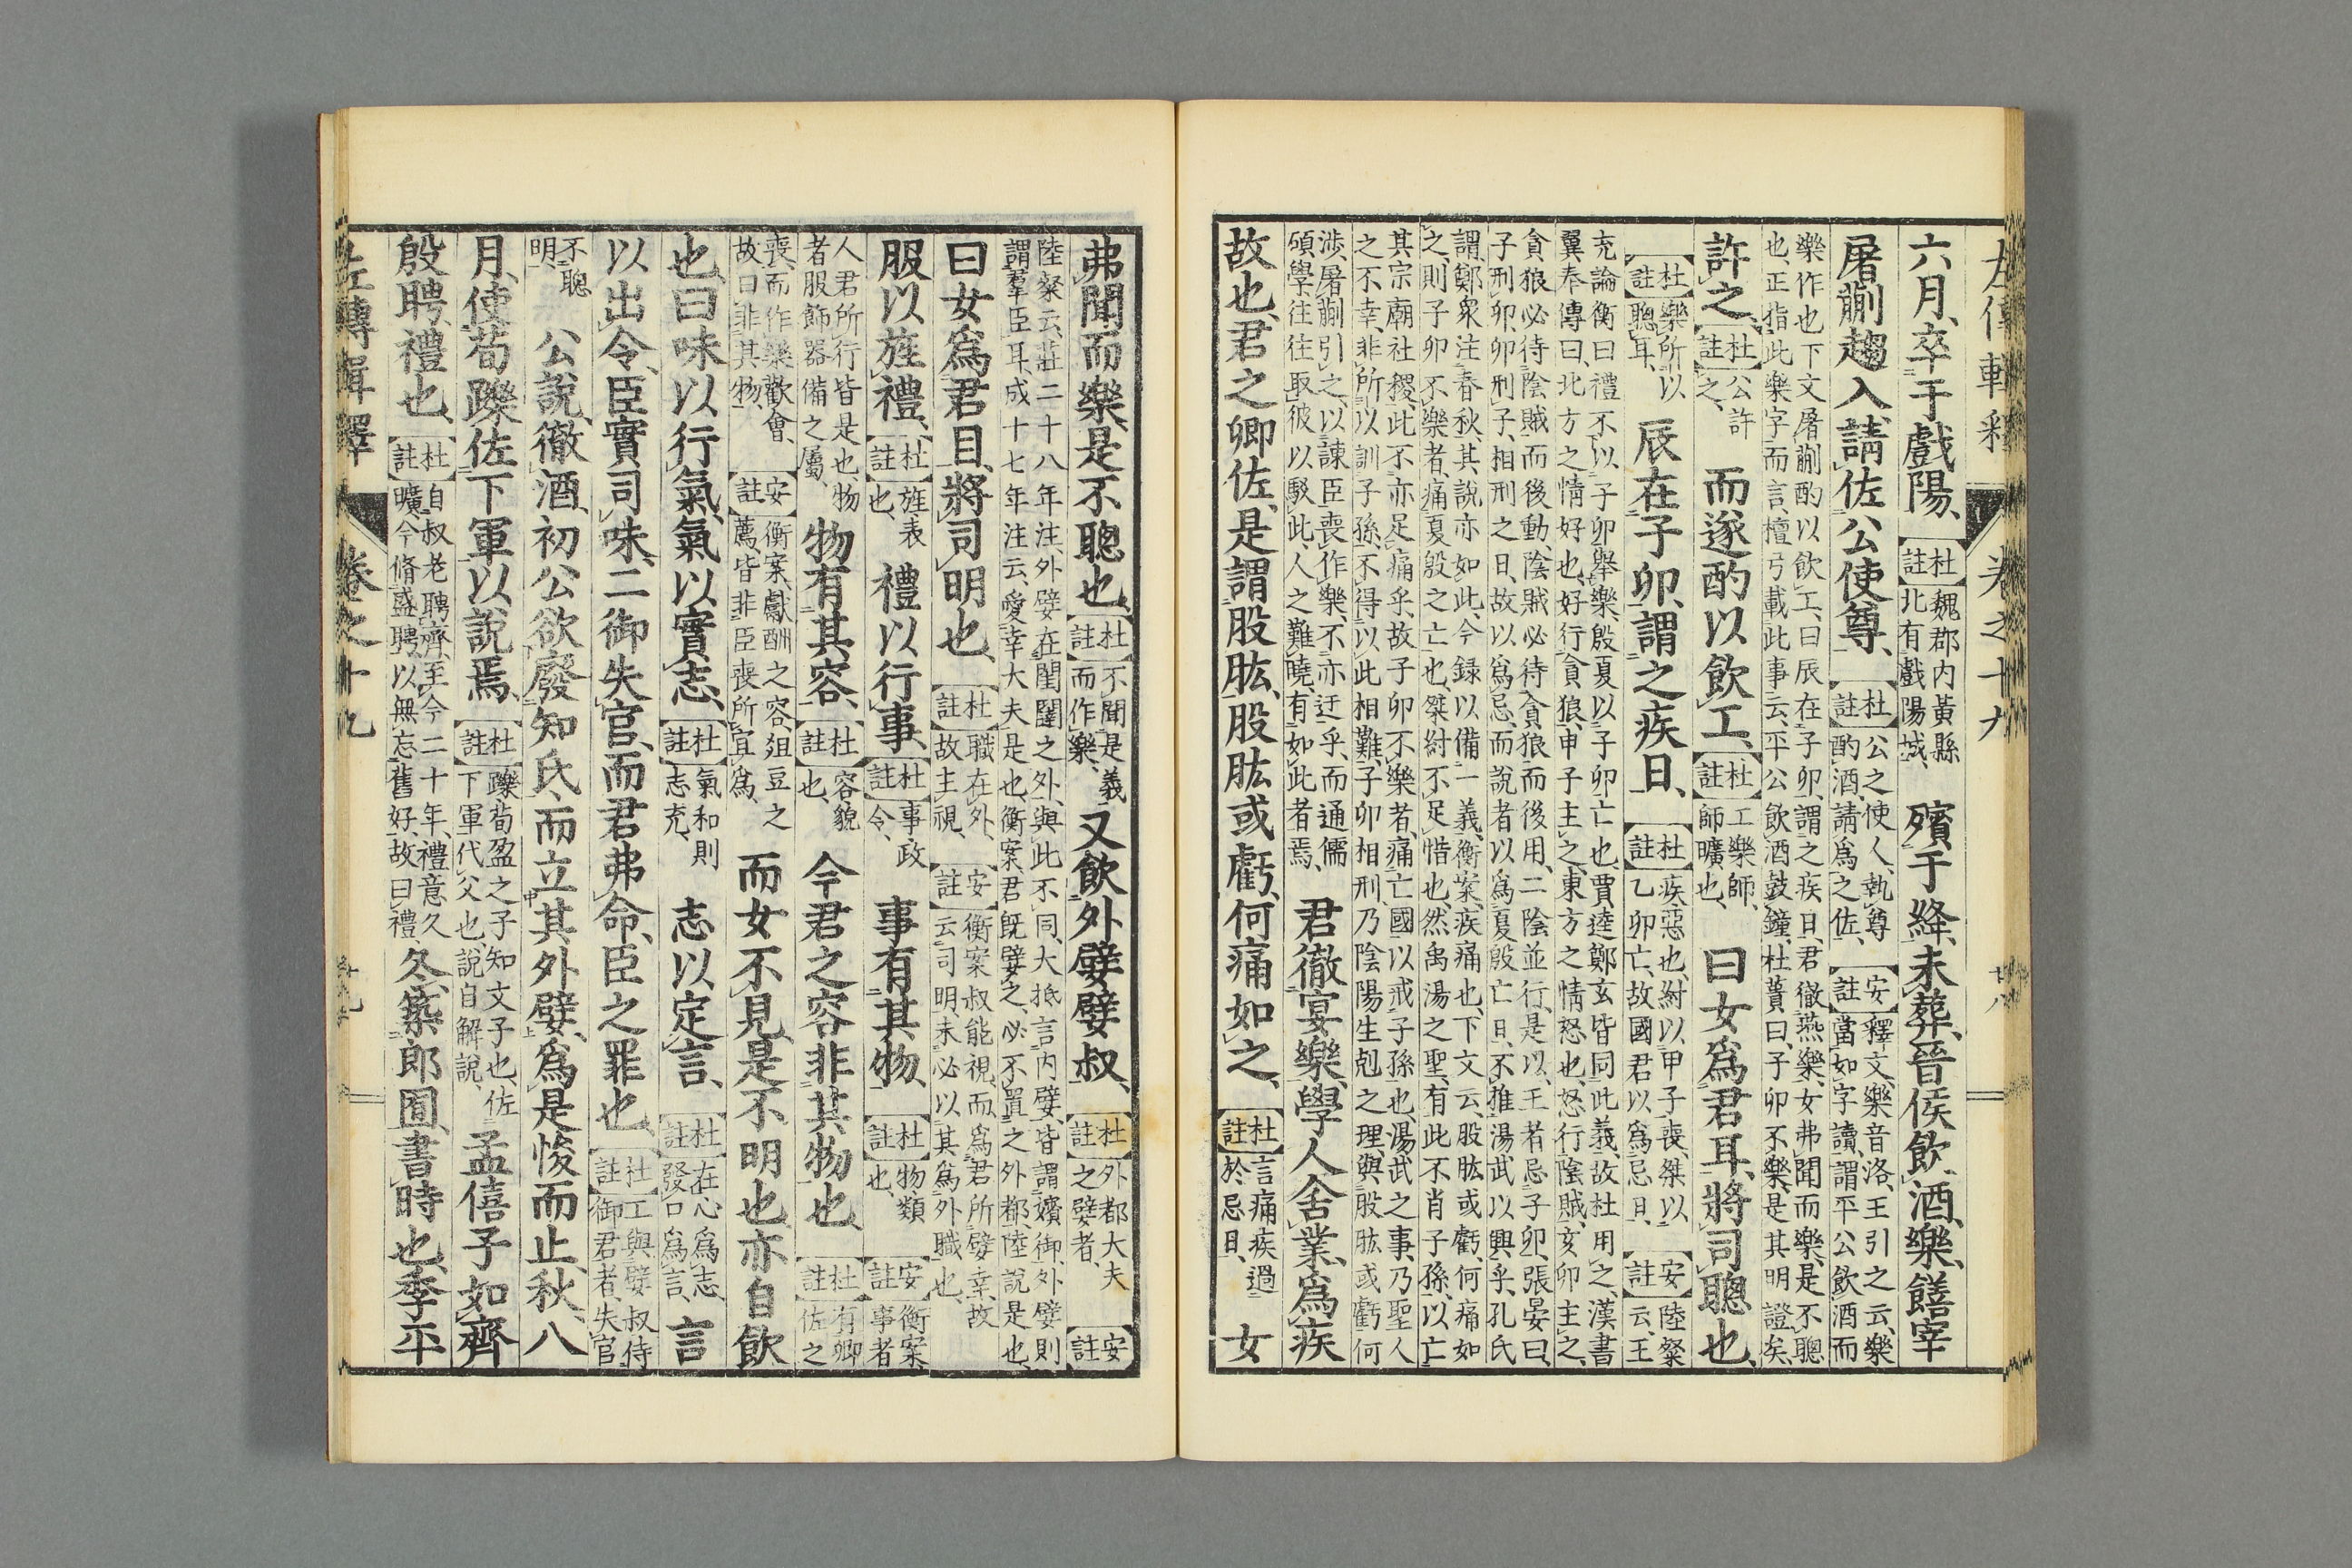 左傳輯釋 卷之十九 廿八
六月、卒于戲陽、【杜註】魏郡内黃縣北有戲陽城、殯于絳、未葬、晉侯飲酒樂、膳宰
屠蒯趨入、請佐公使尊、【杜註】公之使人、執尊酌酒、請爲之佐、【安註】釋文、樂音洛、王引之云、樂當如字讀、謂平公飲酒而
樂作也、下文屠蒯酌以飲工、曰辰在子卯、謂之疾日、君徹燕樂、女弗聞而樂、是不聰也、正指此樂字而言、檀弓載此事云、平公飲酒鼓鐘、杜蕢曰、子卯不樂、是其明證矣、
許之、【杜註】公許之、而遂酌以飲工、【杜註】工樂師、師曠也、曰女爲君耳、將司聰也、
【杜註】樂所以聰耳、辰在子卯、謂之疾日、【杜註】疾惡也、紂以甲子喪、桀以乙卯亡、故國君以爲忌日、【安註】陸粲云、王
充論衡曰、禮不以子卯舉樂、殷夏以子卯亡也、賈逵鄭玄皆同此義、故杜用之、漢書翼奉傳曰、北方之情好也、好行貪狼、申子主之、東方之情怒也、怒行陰賊、亥卯主之、
貪狼必待陰賊而後動、陰賊必待貪狼而後用、二陰並行、是以王者忌子卯、張晏曰、子刑卯、卯刑子、相刑之日、故以爲忌、而說者以爲夏殷亡日、不推湯武以興乎、孔氏
謂、鄭衆注春秋、其說亦如此、今録以備一義、衡案、疾痛也、下文云、股肱或虧、何痛如之、則子卯不樂者、痛夏殷之亡也、桀紂不足惜也、然禹湯之聖、有此不肖子孫、以亡
其宗廟社稷、此不亦足痛乎、故子卯不樂者、痛亡國以戒子孫也、湯武之事、乃聖人之不幸、非所以訓子孫、不得以此相難、子卯相刑、乃陰陽生剋之理、與股肱或虧何
涉、屠蒯引之、以諫臣喪作樂、不亦迂乎、而通儒碩學、往往取彼以駁此、人之難曉、有如此者焉、君徹宴樂、學人舍業、爲疾
故也、君之卿佐、是謂股肱、股肱或虧、何痛如之、【杜註】言痛疾過於忌日、女
弗聞而樂、是不聰也、【杜註】不聞是義而作樂、又飲外嬖嬖叔、【杜註】外都大夫之嬖者、【安註】
陸粲云、莊二十八年注、外嬖在閨闥之外、與此不同、大抵言内嬖、皆謂嬪御、外嬖則謂羣臣耳、成十七年注云、愛幸大夫是也、衡案、君既嬖之、必不置之外都、陸說是也、
曰女爲君目、將司明也、【杜註】職在外、故主視、【安註】衡案、叔能視、而爲君所嬖幸、故云司明、未必以其爲外職也、
服以旌禮、【杜註】旌、表也、禮以行事、【杜註】事、政令、事有其物、【杜註】物類也、【安註】衡案、事者
人君所行皆是也、物者服飾器備之屬、物有其容、【杜註】容貌也、今君之容、非其物也、【杜註】有卿佐之
喪、而作樂歡會、故曰非其物、【安註】衡案、獻酬之容、俎豆之薦、皆非臣喪所宜爲、而女不見、是不明也、亦自飲
也、曰味以行氣、氣以實志、【杜註】氣和則志充、志以定言、【杜註】在心爲志、發口爲言、言
以出令、臣實司味、二御失官、而君弗命、臣之罪也、【杜註】工與嬖叔侍御君者、失官
不聰明、公說、徹酒、初公欲廢知氏、而立其外嬖、爲是悛而止、秋、八
月、使荀躒佐下軍以說焉、【杜註】躒、荀盈之子知文子也、佐下軍代父也、說自解說、孟僖子如齊
殷聘、禮也、【杜註】自叔老聘齊、至今二十年、禮意久曠、今脩盛聘、以無忘舊好、故曰禮、冬、築郎囿、書時也、季平
左傳輯釋 卷之十九